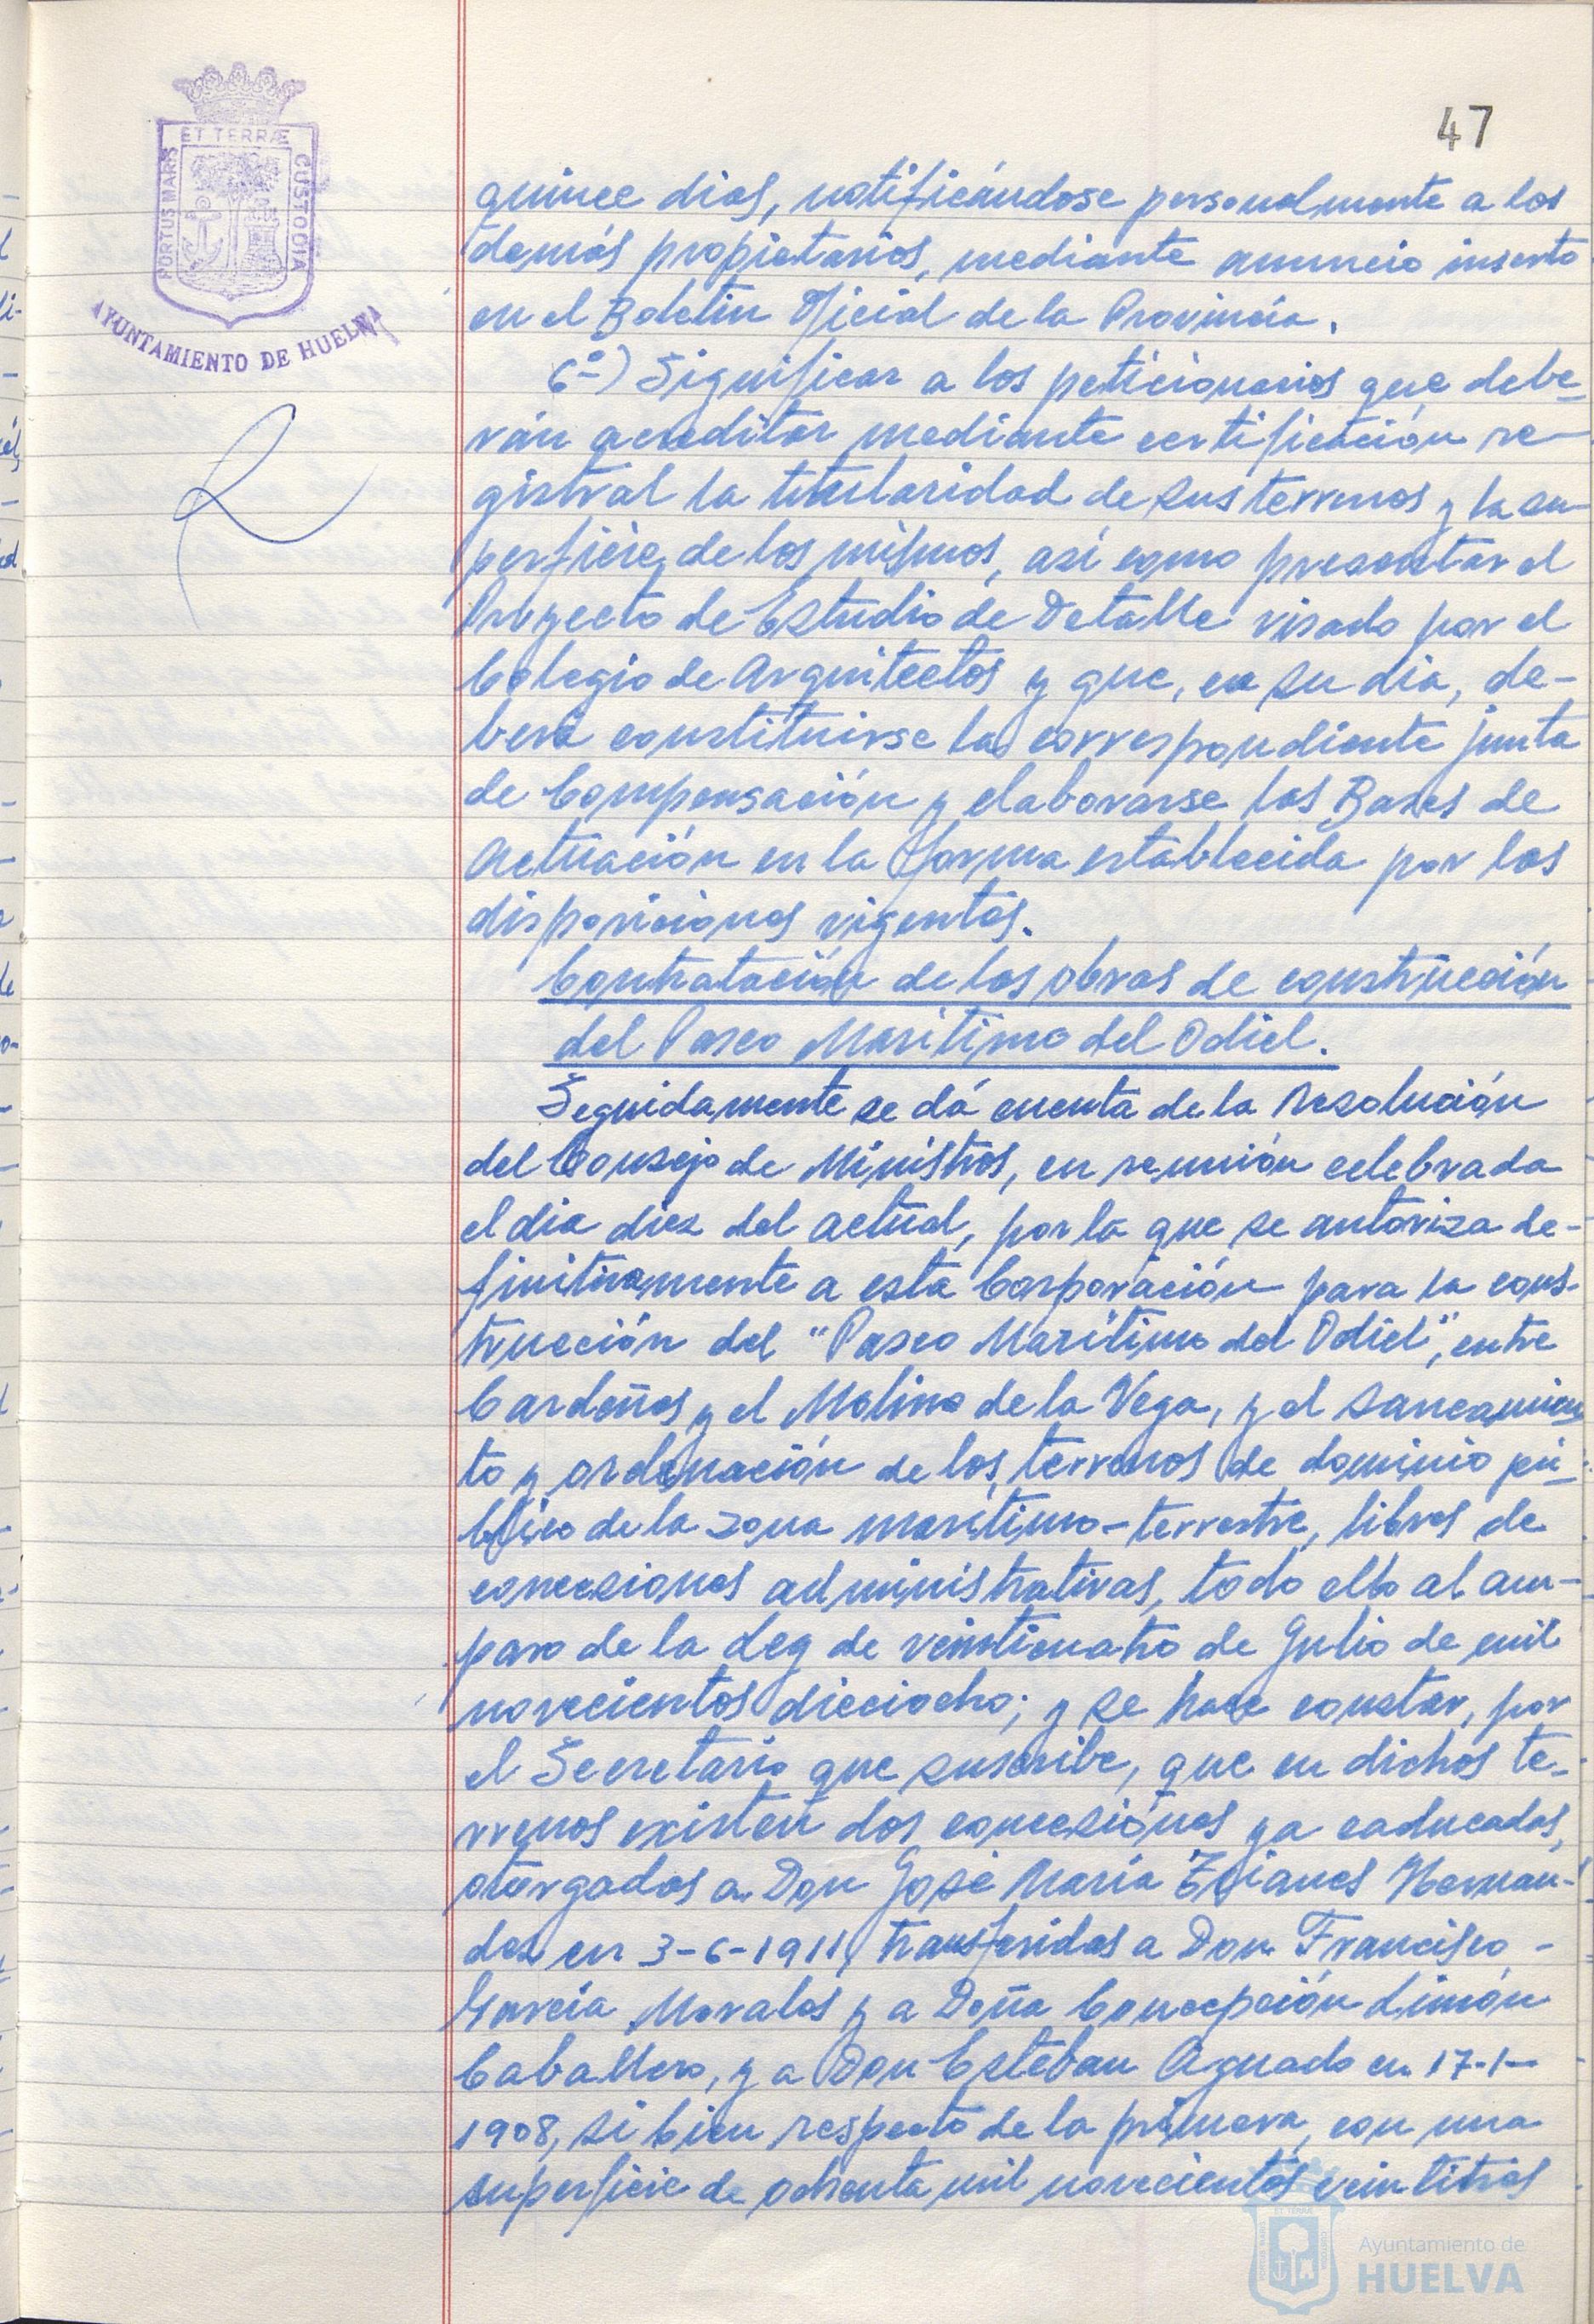 47
ET TERRÆ
PORTUS MARIS
CUSTODIA
AYUNTAMIENTO DE HUELVA
quince dias, notificándose personalmente a los
demás propietarios, mediante anuncio inserto
en el Boletin Oficial de la Provincia.
6º) Significar a los peticionarios que debe-
rán acreditar mediante certificación re-
gistral la titularidad de sus terrenos y la su-
perficie de los mismos, así como presentar el
Proyecto de Estudio de Detalle visado por el
Colegio de Arquitectos y que, en su dia, de-
berá constituirse la correspondiente junta
de Compensación y elaborarse las Bases de
Actuación en la forma establecida por las
disposiciones vigentes.
Contratación de las obras de construcción
del Paseo Maritimo del Odiel.
Seguidamente se dá cuenta de la resolución
del Consejo de Ministros, en reunión celebrada
el dia diez del actual, por la que se autoriza de-
finitivamente a esta Corporación para la cons-
trucción del "Paseo Marítimo del Odiel", entre
Cardeñas y el Molino de la Vega, y el saneamien
to y ordenación de los terrenos de dominio pú-
blico de la zona marítimo-terrestre, libres de
concesiones administrativas, todo ello al am-
paro de la Ley de veinticuatro de Julio de mil
novecientos dieciocho; y se hace constar, por
el Secretario que suscribe, que en dichos te-
rrenos existen dos concesiones ya caducadas,
otorgadas a Don José María Hernan-
dez en 3-6-1911, transferidas a Don Francisco
García Morales y a Doña Concepción Limón
Caballero, y a Don Esteban Aguado en 17-1-
1908, si bien respecto de la primera, con una
superficie de ochenta mil novecientos veintitres
Ayuntamiento de
HUELVA